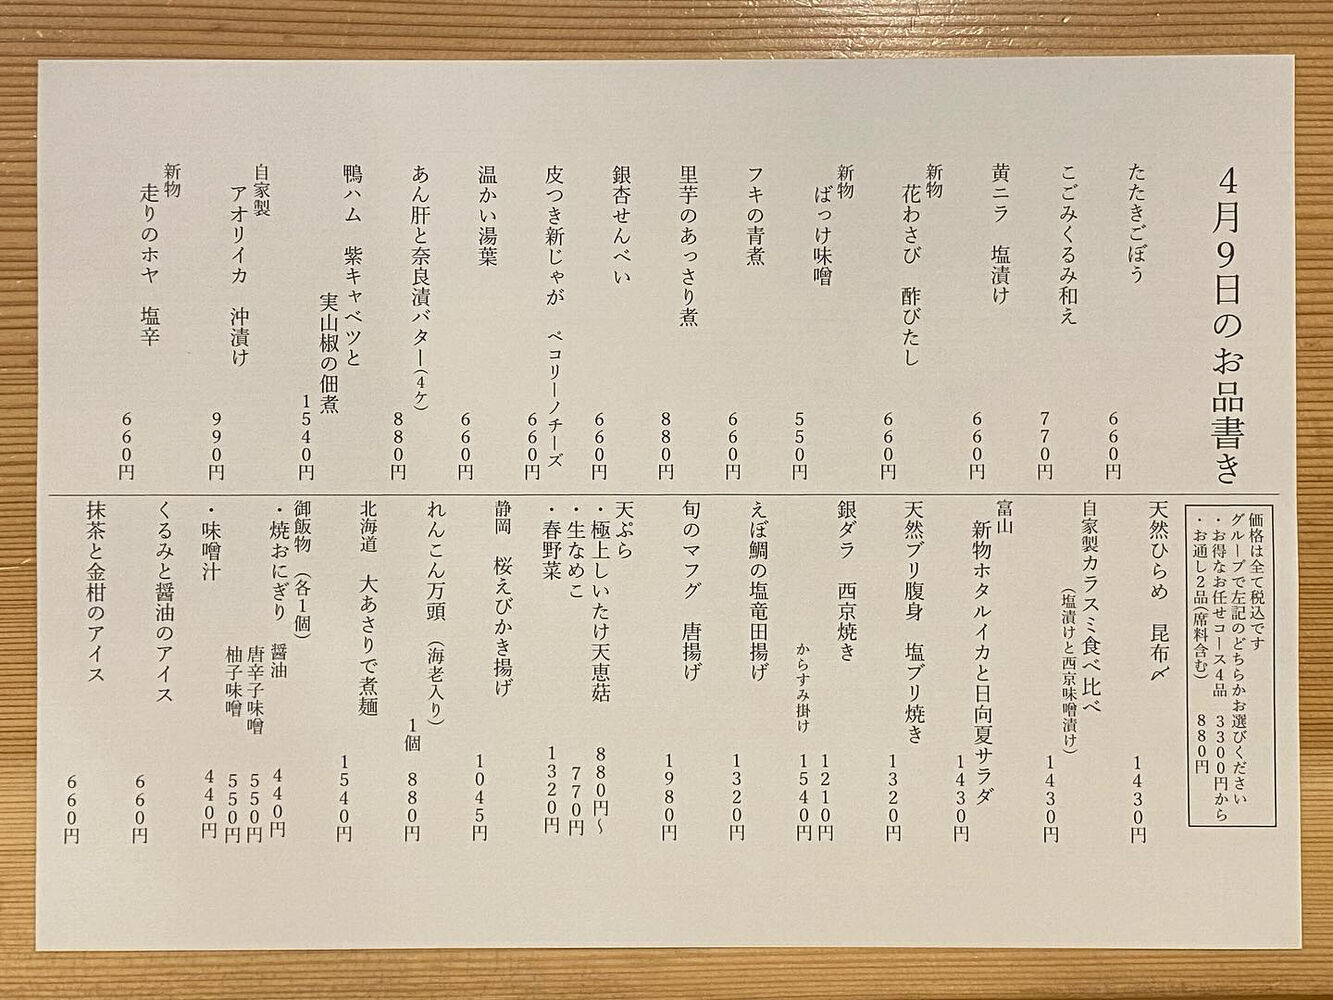 4月9日のお品書き
たたきごぼう
660円
こごみくるみ和え
770円
黄ニラ 塩漬け
660円
新物
花わさび 酢びたし
660円
新物
ばっけ味噌
550円
フキの青煮
660円
里芋のあっさり煮
880円
銀杏せんべい
660円
皮つき新じゃが ペコリーノチーズ
660円
温かい湯葉
660円
あん肝と奈良漬バター(4ケ)
880円
鴨ハム 紫キャベツと
実山椒の佃煮
1540円
自家製
アオリイカ 沖漬け
990円
新物
走りのホヤ 塩辛
660円
価格は全て税込です
グループで左記のどちらかお選びください
・お得なお任せコース4品 3300円から
・お通し2品(席料含む) 880円
天然ひらめ 昆布〆
1430円
自家製カラスミ食べ比べ
(塩漬けと西京味噌漬け)
1430円
富山
新物ホタルイカと日向夏サラダ
1430円
天然ブリ腹身 塩ブリ焼き
1320円
銀ダラ 西京焼き
1210円
からすみ掛け
1540円
えぼ鯛の塩竜田揚げ
1320円
旬のマフグ 唐揚げ
1980円
天ぷら
・極上しいたけ天恵菇 880円〜
・生なめこ 770円
・春野菜 1320円
静岡 桜えびかき揚げ
1045円
れんこん万頭 (海老入り)
1個 880円
北海道 大あさりで煮麺
1540円
御飯物 (各1個)
・焼おにぎり 醤油 440円
唐辛子味噌 550円
柚子味噌 550円
・味噌汁 440円
くるみと醤油のアイス
660円
抹茶と金柑のアイス
660円